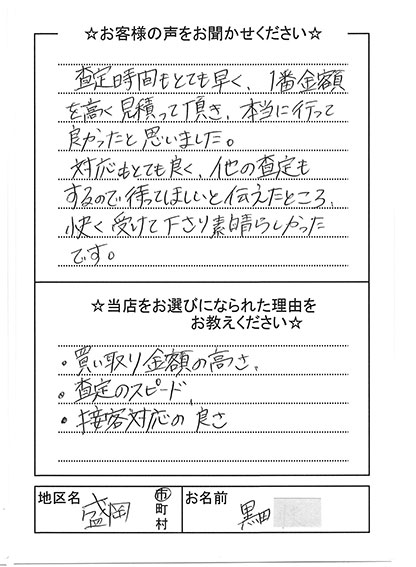 ☆お客様の声をお聞かせください☆
査定時間もとても早く、1番金額
を高く見積って頂き、本当に行って
良かったと思いました。
対応もとても良く、他の査定も
するので待ってほしいと伝えたところ、
快く受けて下さり素晴らしかった
です。
☆当店をお選びになられた理由を
お教えください☆
・買い取り金額の高さ、
・査定のスピード、
・接客対応の良さ
地区名 盛岡 市町村 お名前 黒田